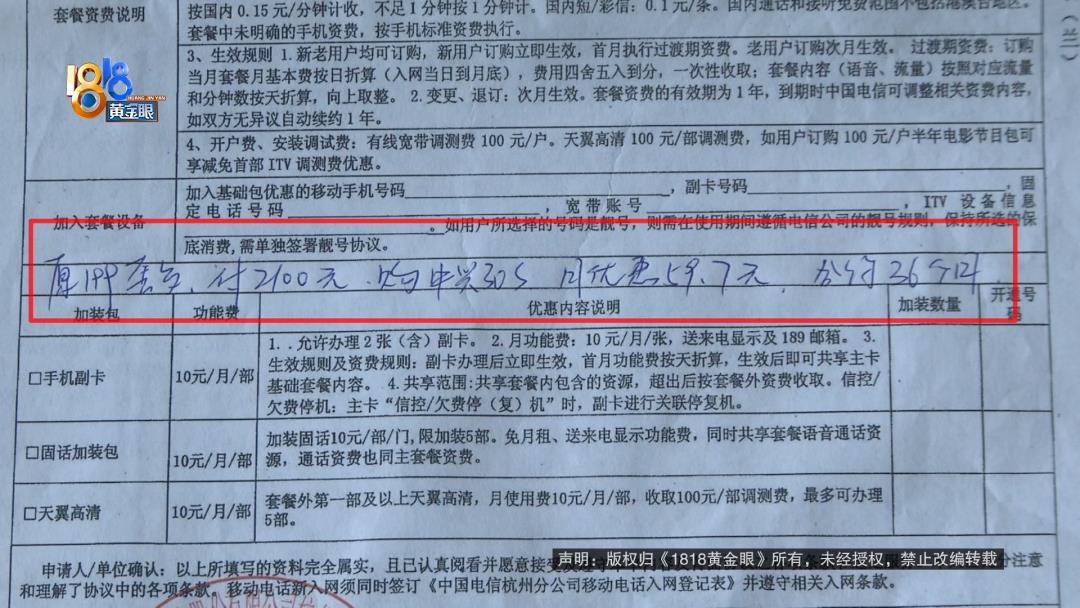 按国内 0.15 元/分钟计收，不足 1 分钟按 1 分钟计。国内短/彩信：0.1 元/条。国内通话和接听免费范围不包括港澳台地区。
套餐资费说明
套餐中未明确的手机资费，按手机标准资费执行。
3、生效规则 1.新老用户均可订购，新用户订购立即生效，首月执行过渡期资费。老用户订购次月生效。 过渡期资费：订购
当月套餐月基本费按日折算（入网当日到月底），费用四舍五入到分，一次性收取；套餐内容（语音、流量）按照对应流量
和分钟数按天折算，向上取整。 2.变更、退订：次月生效。套餐资费的有效期为 1 年，到期时中国电信可调整相关资费内容，
如双方无异议自动续约 1 年。
1818
HUANG JIN YAN
黄金眼
4、开户费、安装调试费：有线宽带调测费 100 元/户。天翼高清 100 元/部调测费，如用户订购 100 元/户半年电影节目包可
享减免首部 ITV 调测费优惠。
加入套餐设备
加入基础包优惠的移动手机号码，副卡号码，固
定电话号码，宽带账号，ITV 设备信息
。如用户所选择的号码是靓号，则需在使用期间遵循电信公司的靓号规则，保持所选的保
底消费,需单独签署靓号协议。
原199套餐，付2100元，购中兴30S 月优惠59.7元，合约36个月
加装包 功能费 优惠内容说明 加装数量 开通号
码
□手机副卡 10元/月/部
1．.允许办理 2 张（含）副卡。 2.月功能费：10 元/月/张，送来电显示及 189 邮箱。 3.
生效规则及资费规则：副卡办理后立即生效，首月功能费按天折算，生效后即可共享主卡
基础套餐内容。 4.共享范围:共享套餐内包含的资源，超出后按套餐外资费收取。信控/
欠费停机：主卡“信控/欠费停（复）机”时，副卡进行关联停复机。
□固话加装包 10元/月/部
加装固话10元/部/门,限加装5部。免月租、送来电显示功能费，同时共享套餐语音通话资
源，通话资费也同主套餐资费。
□天翼高清 10元/月/部
套餐外第一部及以上天翼高清，月使用费10元/月/部，收取100元/部调测费，最多可办理
5部。
申请人/单位确认：以上所填写的资料完全属实，且已认真阅看并愿意接受
和理解了协议中的各项条款。移动电话新入网须同时签订《中国电信杭州分公司移动电话入网登记表》并遵守相关入网条款。
声明：版权归《1818黄金眼》所有，未经授权，禁止改编转载